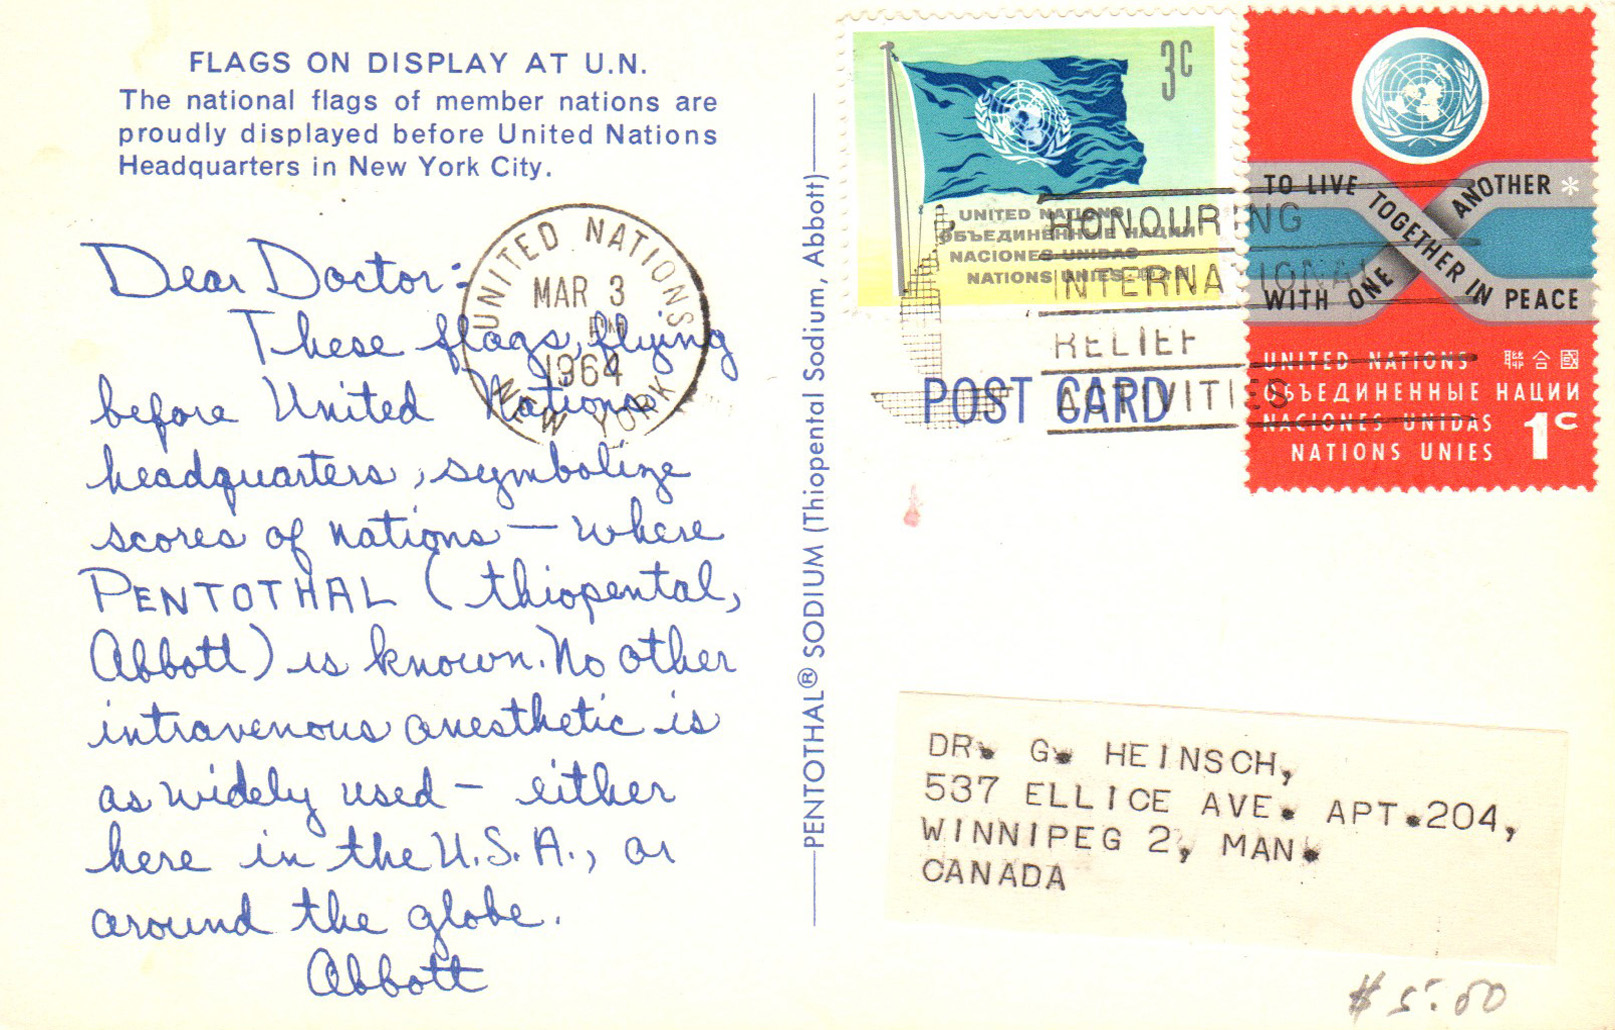 FLAGS ON DISPLAY AT U.N.
The national flags of member nations are
proudly displayed before United Nations
Headquarters in New York City.
Dear Doctor:
These flags, flying
before United Nations
headquarters, symbolize
scores of nations — where
PENTOTHAL (thiopental,
Abbott) is known. No other
intravenous anesthetic is
as widely used — either
here in the U.S.A., or
around the globe.
Abbott
UNITED NATIONS
MAR 3
PM
1964
NEW YORK
PENTOTHAL® SODIUM (Thiopental Sodium, Abbott)
3c
UNITED NATIONS
ОБЪЕДИНЕННЫЕ НАЦИИ
NACIONES UNIDAS
NATIONS UNIES
HONOURING
INTERNATIONAL
RELIEF
ACTIVITIES
POST CARD
TO LIVE TOGETHER IN PEACE
WITH ONE ANOTHER *
UNITED NATIONS 聯合國
ОБЪЕДИНЕННЫЕ НАЦИИ
NACIONES UNIDAS
NATIONS UNIES
1c
DR. G. HEINSCH,
537 ELLICE AVE. APT.204,
WINNIPEG 2, MAN.
CANADA
$5.00